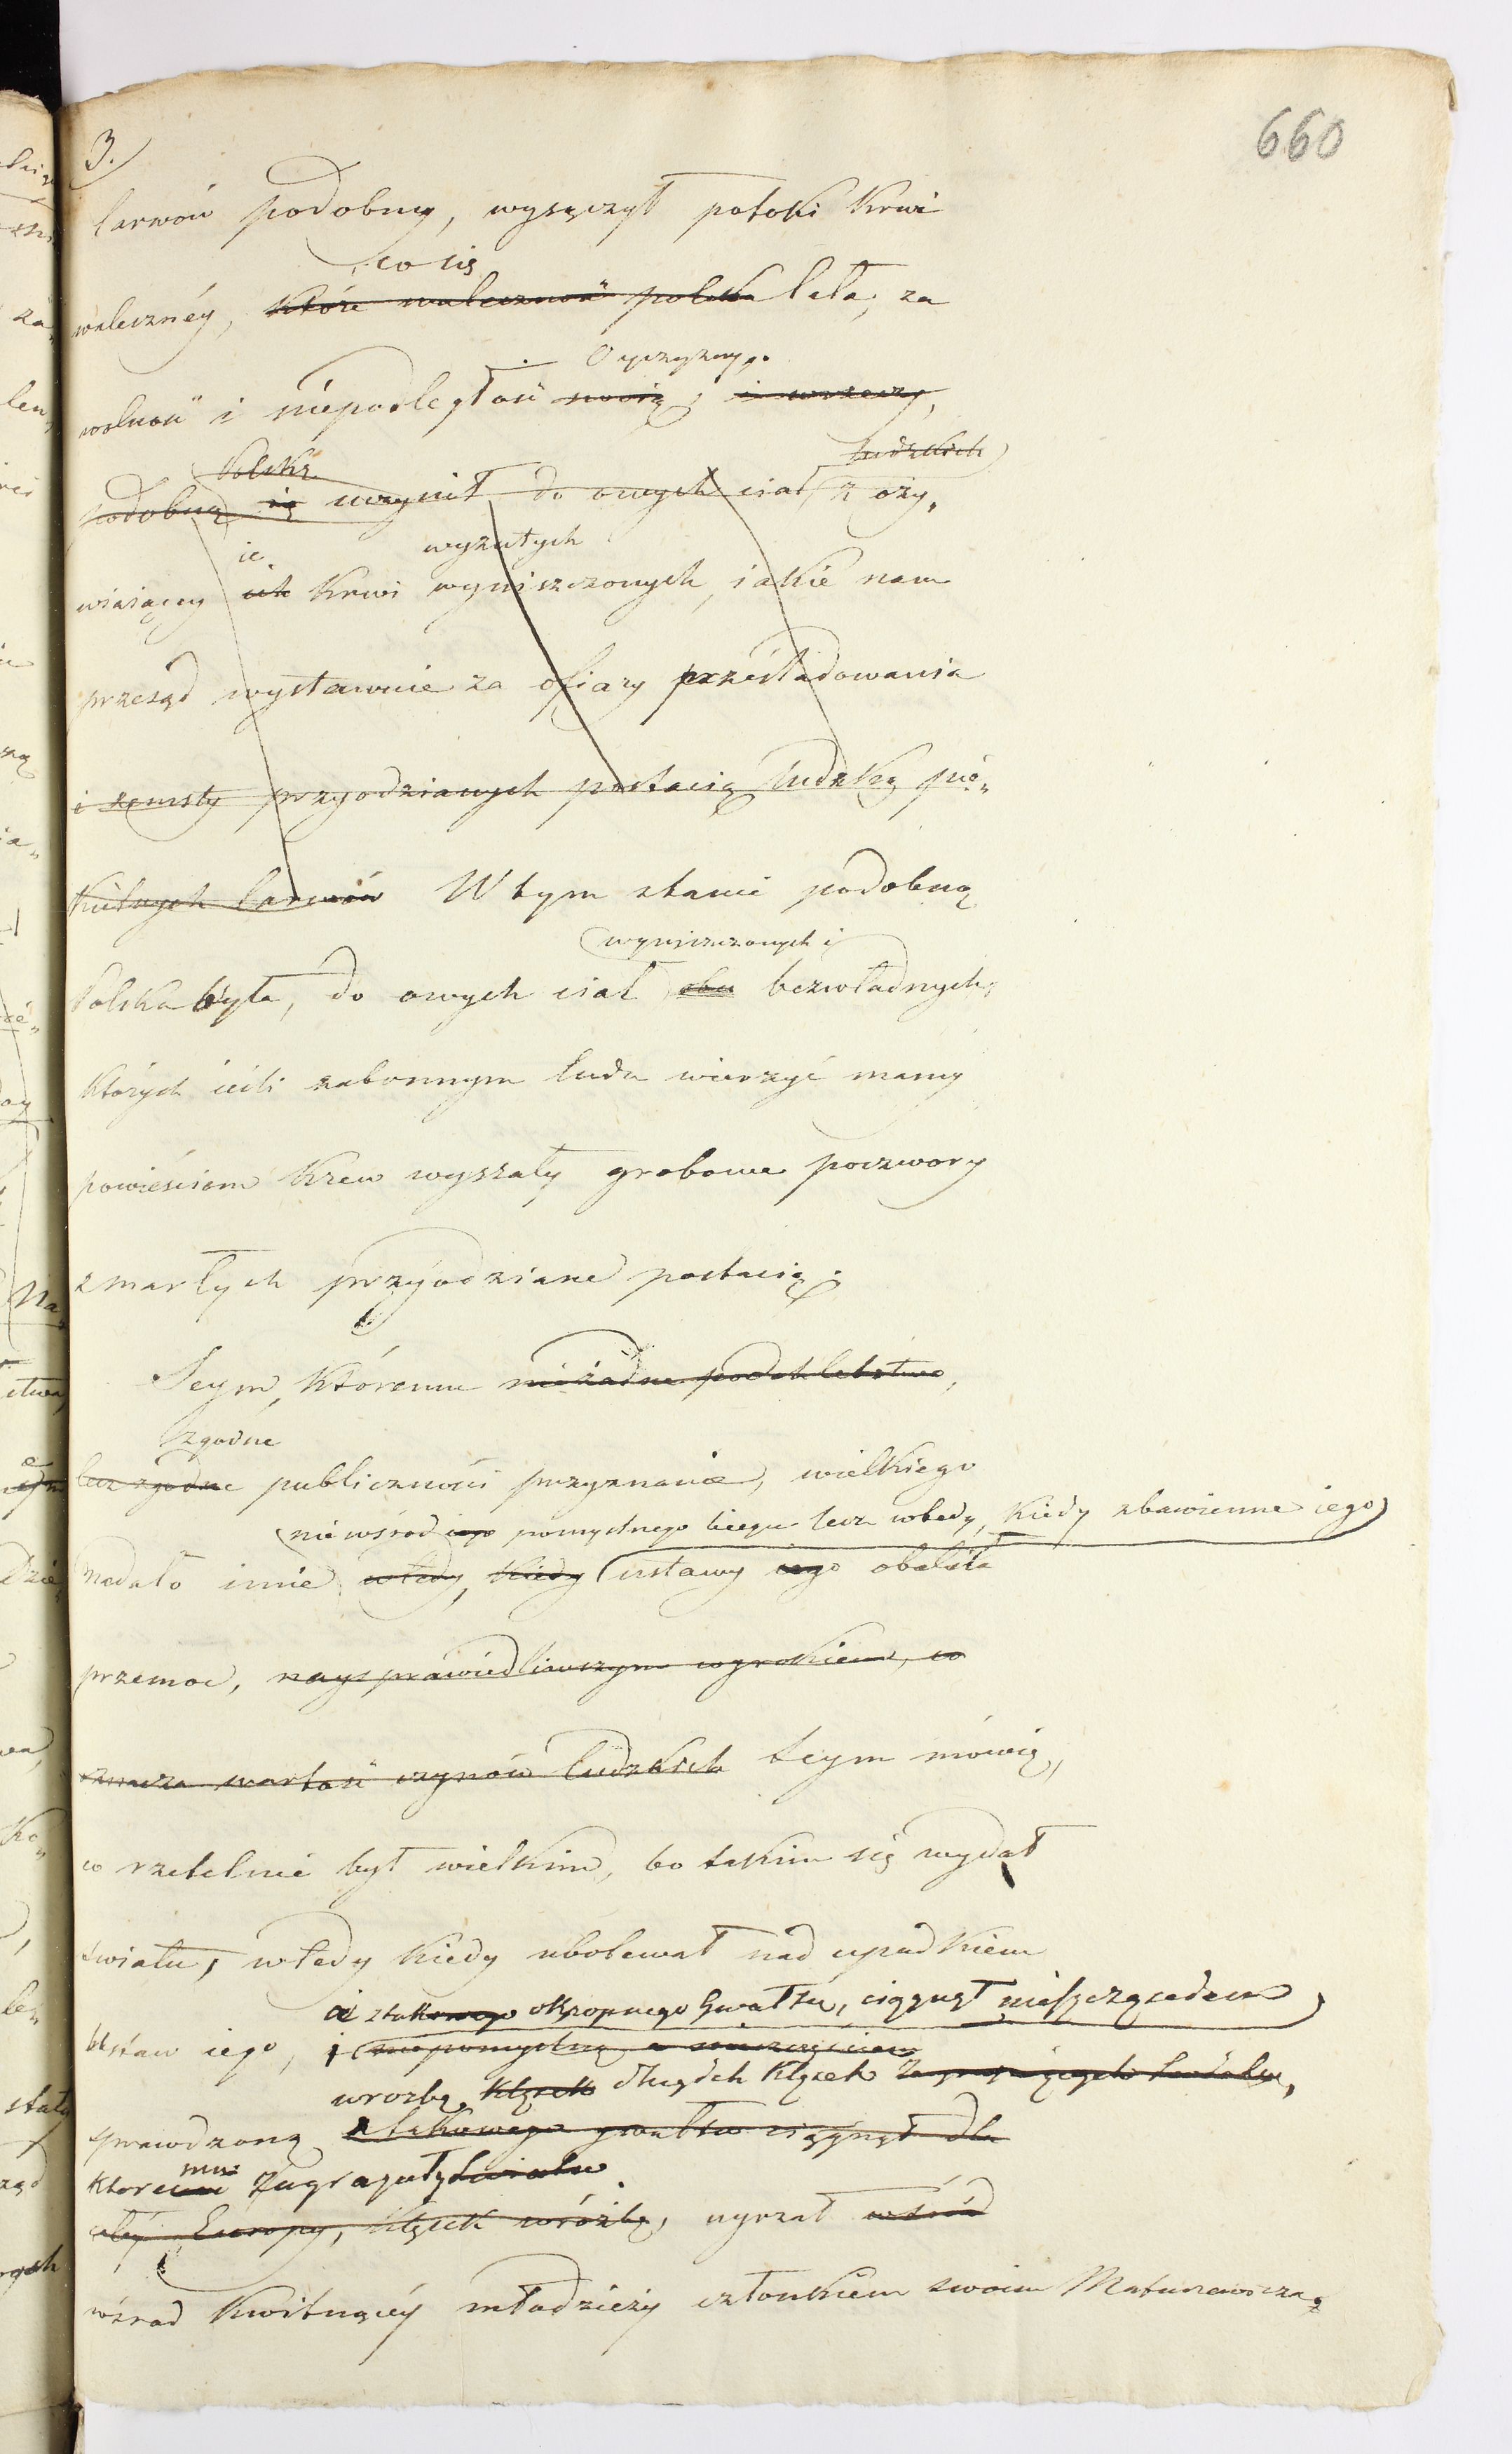 660
3.
larwów podobny, wysączył potoki Krwi
co się
waleczney, które waleczność polska lała, za
Oyczyzny.
wolność i niepodległość swoią; i wrzeczy,
Polskę ludzkich
podobną ią uczynił do owych ciał, z oży,
ie wyzutych
wiaiącey ich Krwi wyniszczonych, iakie nam
przesąd wystawuie za ofiary prześladowania
i zemsty przyodzianych postacią ludzką pie„
kielnych larwów W tym stanie podobną
wyniszczonych i
Polska była, do owych ciał bezwładnych,
których ieśli zabonnym ludu wierzyć mamy
powieściom Krew wyssały grobowe poczwory
zmarłych przyodziane postacią.
Seym, któremu nieżadne podchlebstwo,
zgodne
lecz zgodne publiczności przyznanie, wielkiego
nie wśrod iego pomyślnego biegu lecz wtedy, kiedy zbawienne iego
nadało imie wtedy, kiedy ustawy iego obaliła
przemoc, naysprawiedliwszym wyrokiem, co
oznacza wartość czynów ludzkich Seym mówię,
co rzetelnie był wielkim, bo takim się wydał
światu, wtedy kiedy ubolewał nad upadkiem
i z takowego okropnego gwałtu, ciągnął nieszczęściem
Ustaw iego, i niepomyślną a nieszczęściem
wrozbę klęsk długich klęsk zagrażaiących światu,
sprawdzoną z takowego gwałtu ciągnął dla
mu
które zagrażały światu
całey Europy, klęsk wróżbę, uyrzał wśród
wśrod kwitnącey młodzieży członkiem swoim Matuszewicza